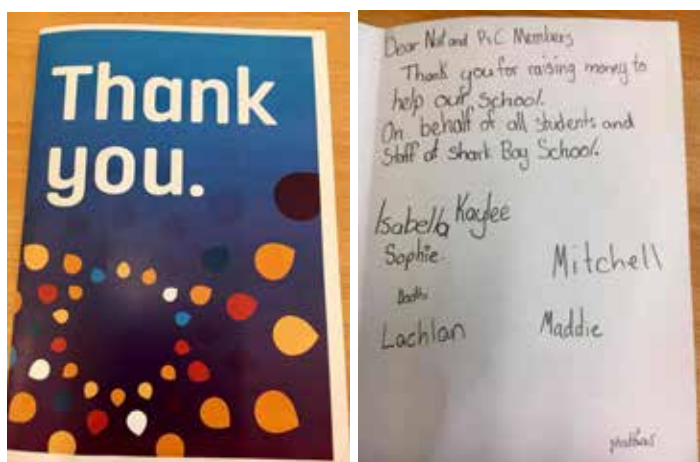 Thank
you.
Dear Nat and P&C Members
Thank you for raising money to
help our School.
On behalf of all students and
Staff of Shark Bay School.
Isabella Kaylee
Sophie
Mitchell
Lachlan
Maddie